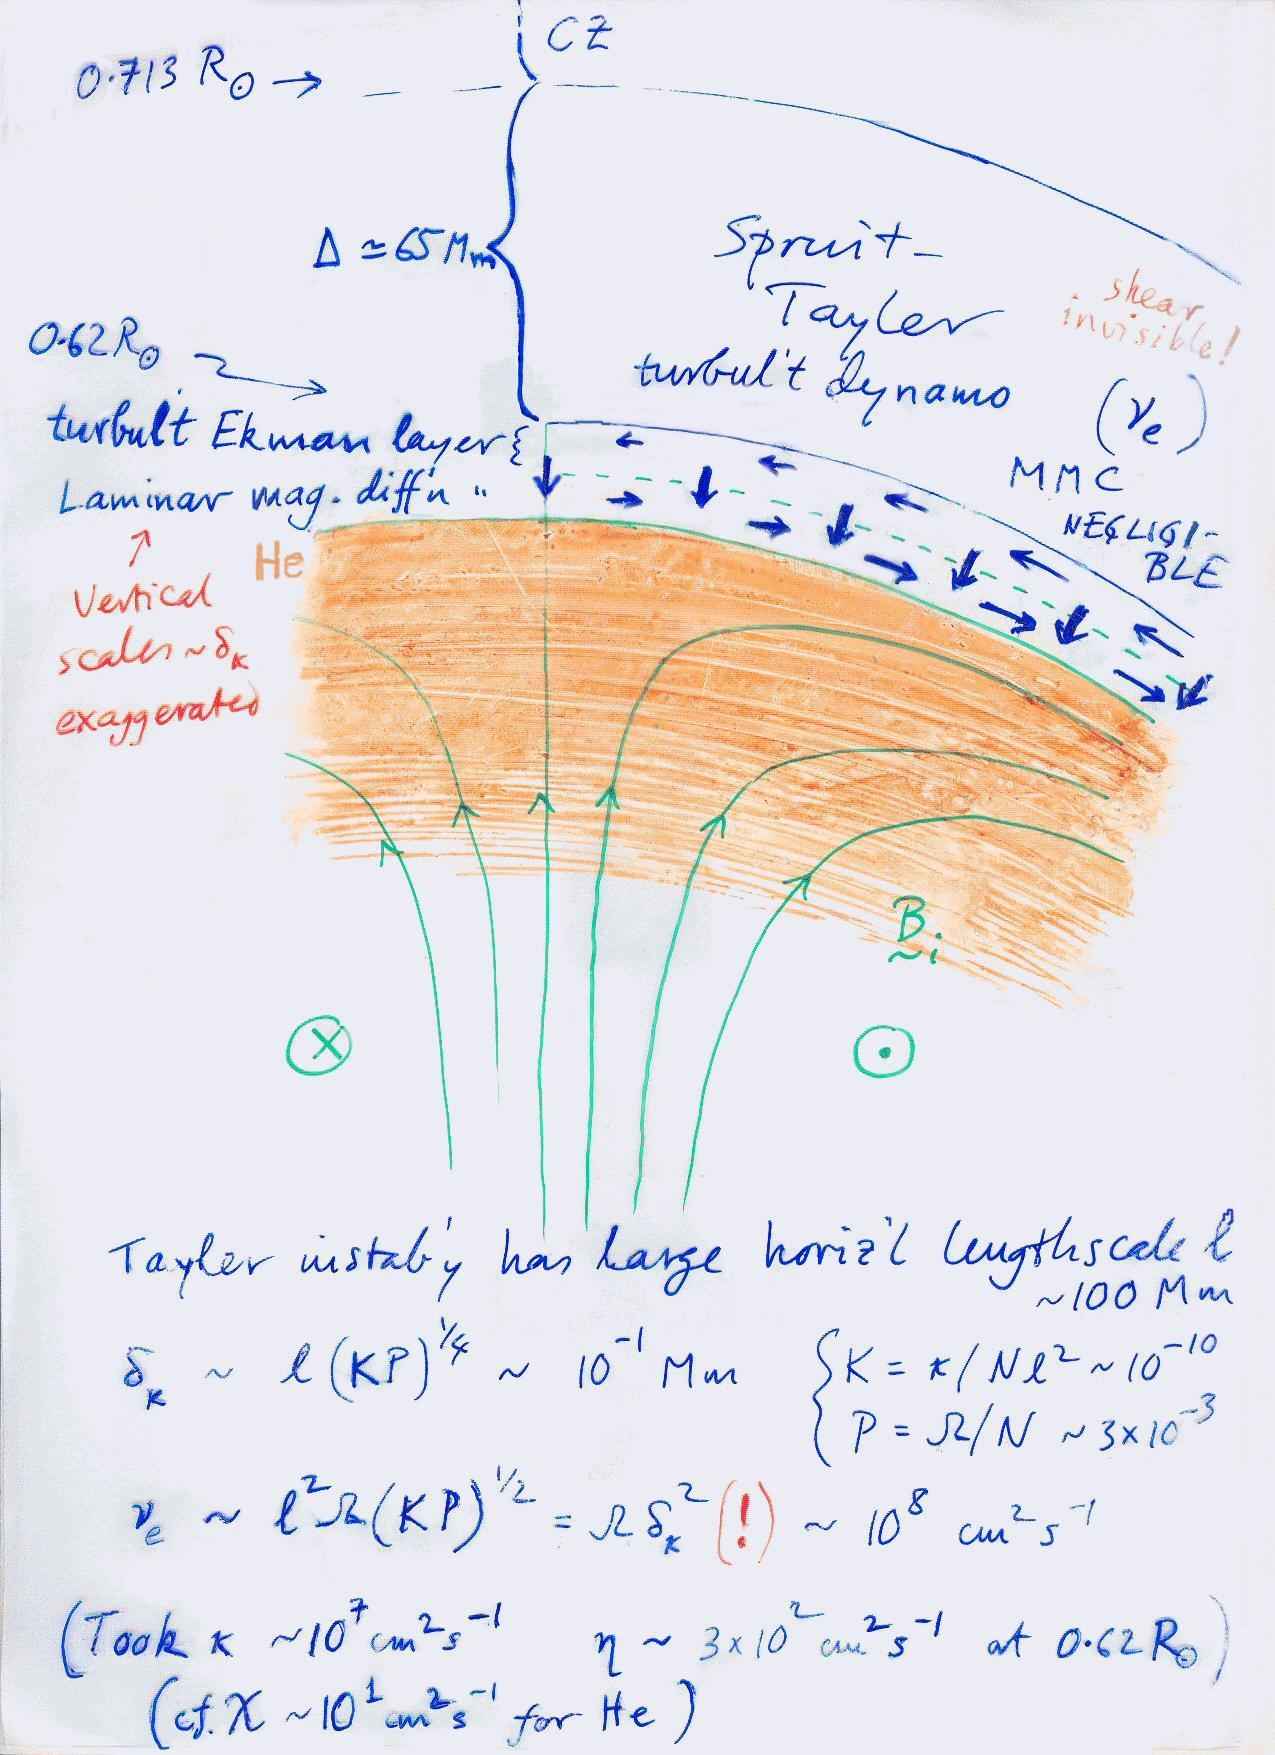 CZ
0.713 R⊙ →
Δ ≃ 65 Mm
Spruit-
Tayler
turbul't dynamo
shear
invisible!
(νe)
0.62 R⊙
turbul't Ekman layer {
Laminar mag. diff'n "
MMC
NEGLIGI-
BLE
He
Vertical
scales ~ δκ
exaggerated
B̰i
Tayler instab'y has large horiz'l lengthscale l
~100 Mm
δκ ~ l (KP)^1/4 ~ 10^-1 Mm { K = κ/Nl² ~ 10^-10
P = Ω/N ~ 3×10^-3
νe ~ l²Ω(KP)^1/2 = Ω δκ² (!) ~ 10^8 cm² s^-1
(Took κ ~10^7 cm² s^-1 η ~ 3×10² cm² s^-1 at 0.62 R⊙)
(cf. χ ~10^1 cm² s^-1 for He)